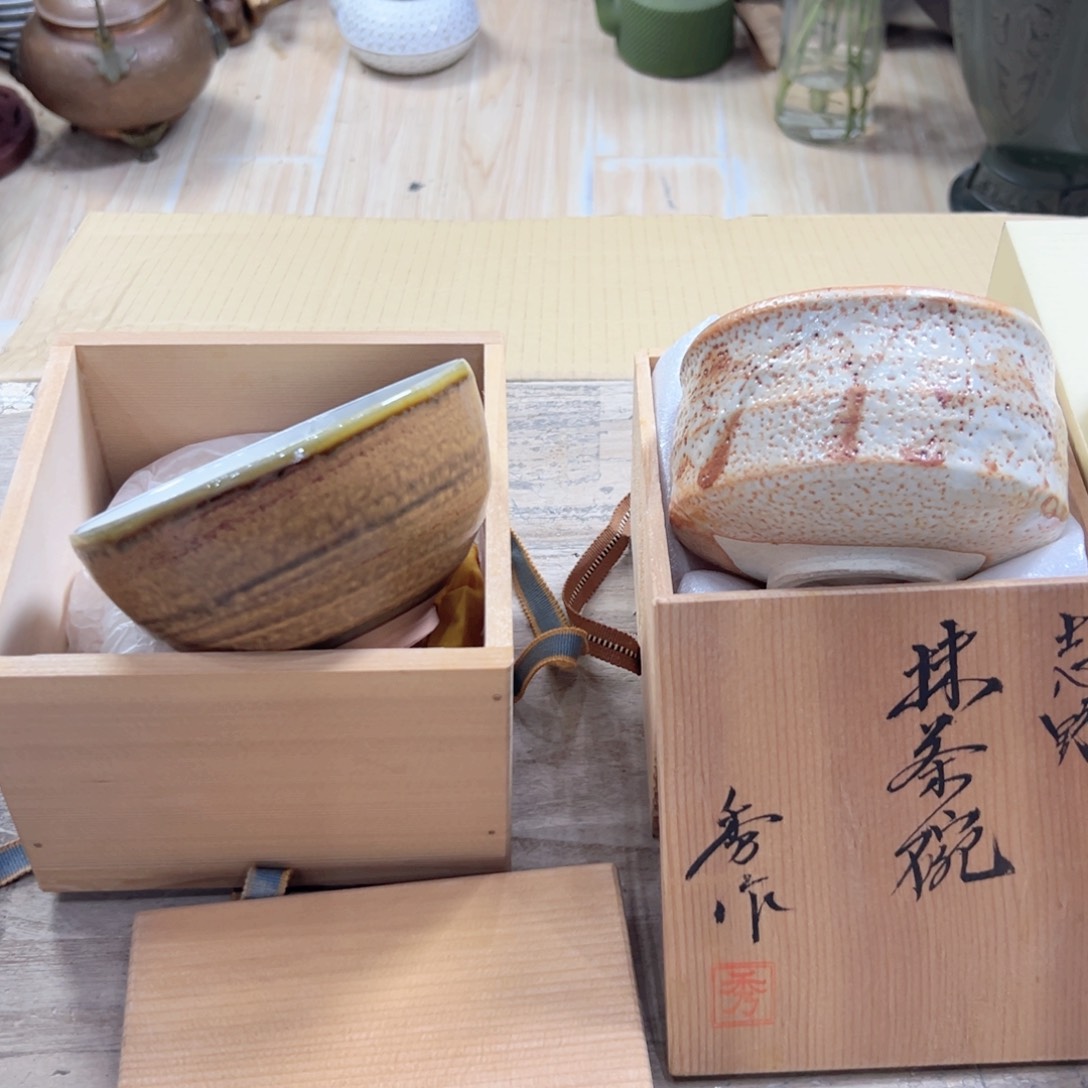 志野
抹茶碗
秀作
秀